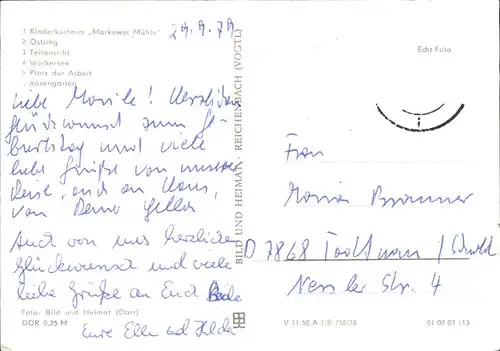 1 Kinderkurheim „Markower Mühle"
2 Ostring
3 Teilansicht
4 Wockersee
5 Platz der Arbeit
6 Rosengarten
liebe Monile! Herzlichen
glückwunsch zum Ge-
burtstag und viele
liebe Grüße von unserer
Reise, und an Klaus,
von Deiner Hella
Auch von uns herzlichen
Glückwunsch und viele
liebe Grüße an Euch Beide
Foto: Bild und Heimat (Darr)
DDR 0,25 M
Eure Ellen und Hilda
BILD UND HEIMAT REICHENBACH (VOGTL)
Echt Foto
Frau
D 7868 Todtnau
Str. 4
V 11 50 A 1/B 758/78
01 07 07 113